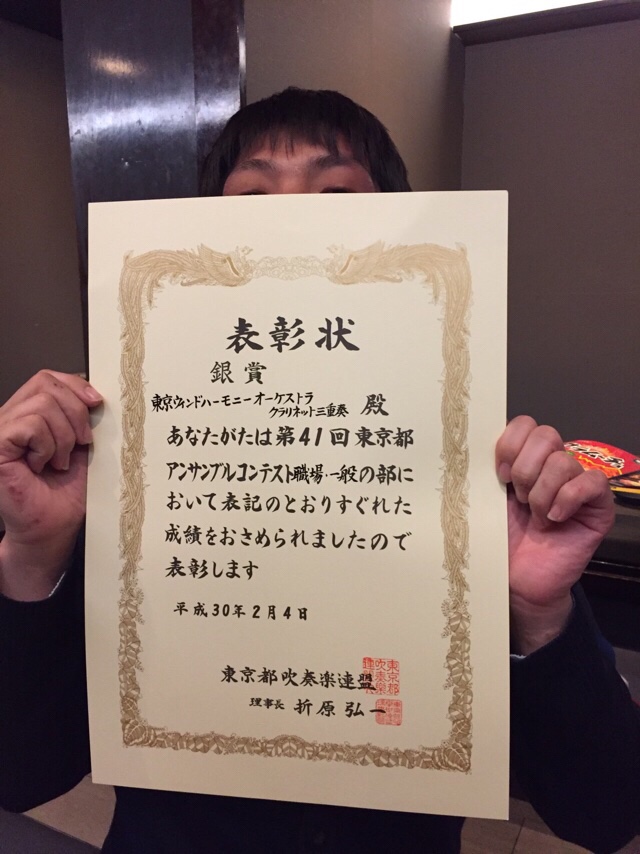 表彰状
銀賞
東京ウィンドハーモニーオーケストラ
クラリネット三重奏 殿
あなたがたは第41回東京都
アンサンブルコンテスト職場・一般の部に
おいて表記のとおりすぐれた
成績をおさめられましたので
表彰します
平成30年2月4日
東京都吹奏楽連盟
理事長 折原弘一